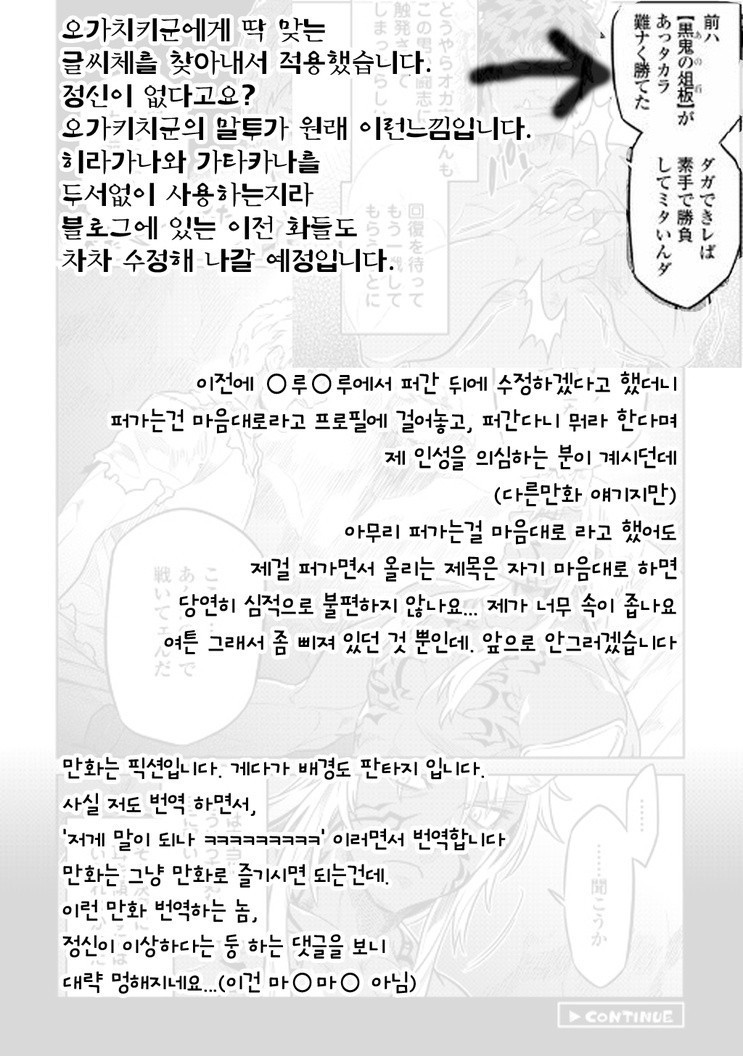 오가치키군에게 딱 맞는
글씨체를 찾아내서 적용했습니다.
정신이 없다고요?
오가키치군의 말투가 원래 이런느낌입니다.
히라가나와 가타카나를
두서없이 사용하는지라
블로그에 있는 이전 화들도
차차 수정해 나갈 예정입니다.
前ハ
【黒鬼の俎板】が
あっタカラ
難ナく勝てた
ダガできレば
素手で勝負
してミタいんダ
どうやらオガ
触発さ
この男 闘志に
しまったらしい
回復を待って
もう一戦して
もらうことに
이전에 ○루○루에서 퍼간 뒤에 수정하겠다고 했더니
퍼가는건 마음대로라고 프로필에 걸어놓고, 퍼간다니 뭐라 한다며
제 인성을 의심하는 분이 계시던데
(다른만화 얘기지만)
아무리 퍼가는걸 마음대로 라고 했어도
제걸 퍼가면서 올리는 제목은 자기 마음대로 하면
당연히 심적으로 불편하지 않나요... 제가 너무 속이 좁나요
여튼 그래서 좀 삐져 있던 것 뿐인데. 앞으로 안그러겠습니다
戦いてェんだ
만화는 픽션입니다. 게다가 배경도 판타지 입니다.
사실 저도 번역 하면서,
'저게 말이 되나 ㅋㅋㅋㅋㅋㅋㅋㅋㅋ' 이러면서 번역합니다
만화는 그냥 만화로 즐기시면 되는건데.
이런 만화 번역하는 놈,
정신이 이상하다는 둥 하는 댓글을 보니
대략 멍해지네요...(이건 마○마○ 아님)
……
……聞こうか
▶CONTINUE